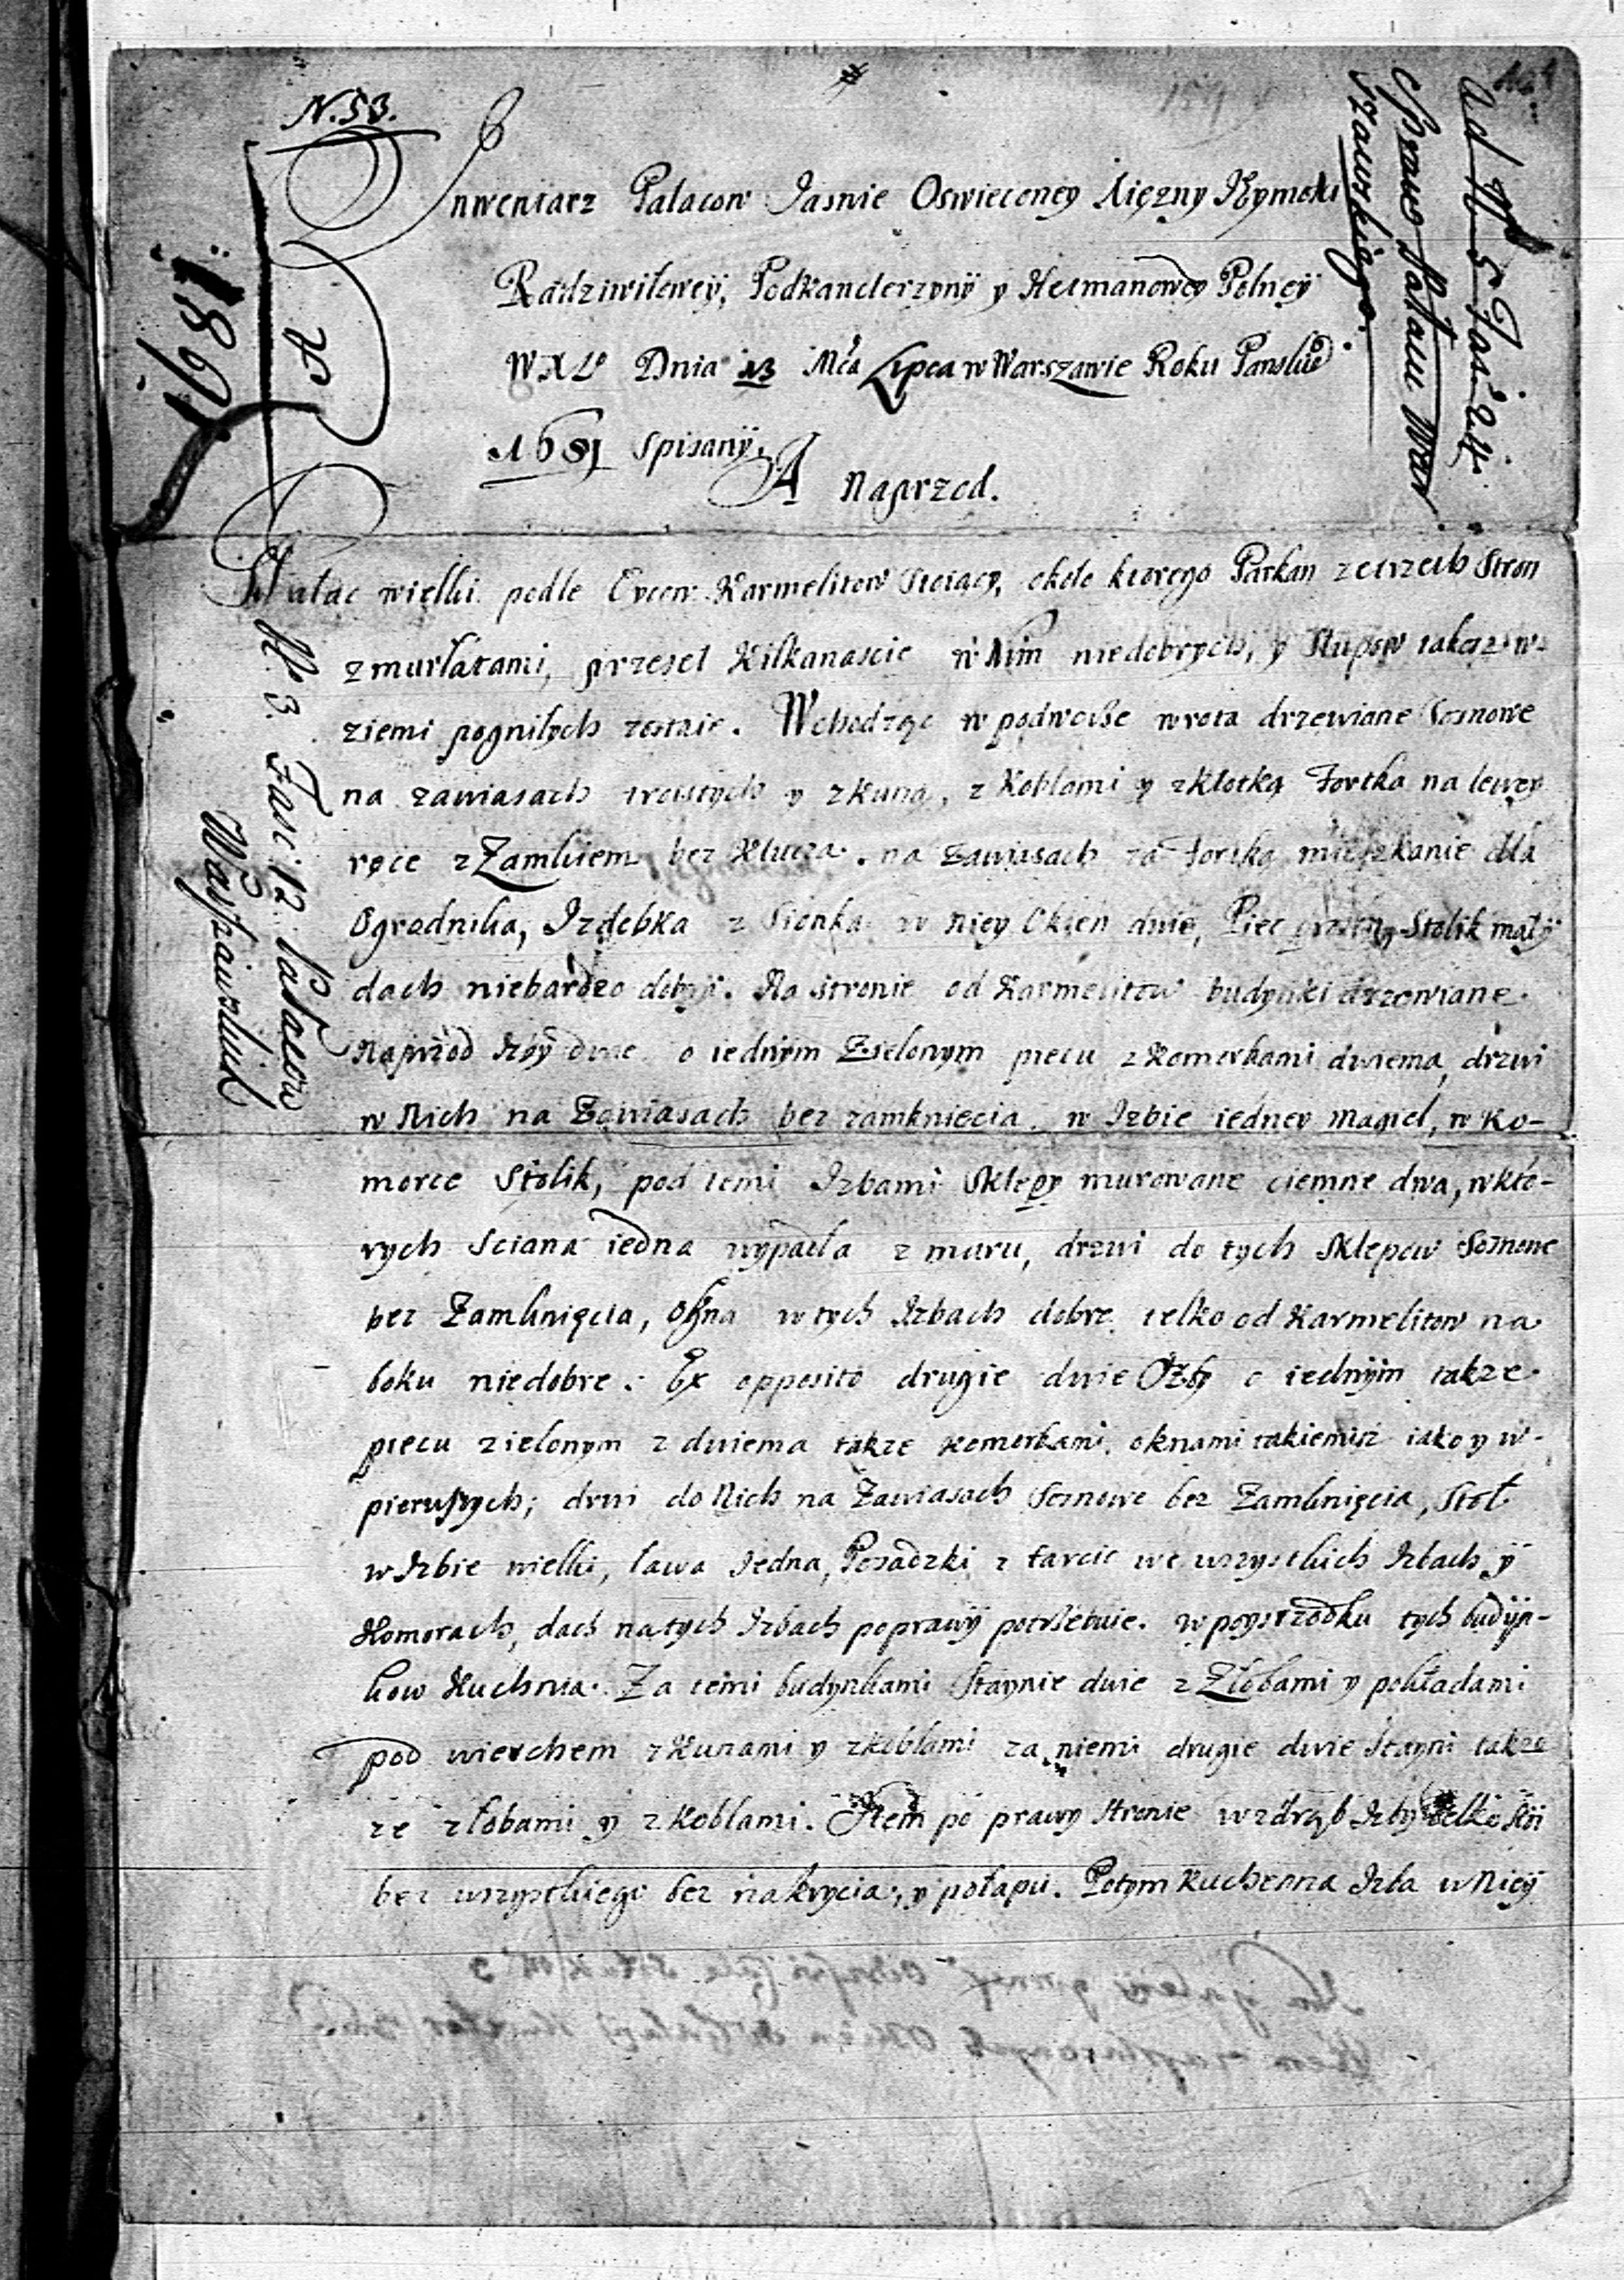 N. 53.
Inwentarz Palacow Jasnie Oswieconey Xięzny JEymośći
Radziwiłowey, Podkanclerzyny y Hetmanowey Polney
W X L° Dnia 13 Mca Lipca w Warszawie Roku Panskie°
1681 spisany,
A Naprzod.
Pałac wielki podle Oycow Karmelitow Stoiący, około ktorego Parkan zetrzech Stron
z murłatami, przeseł Kilkanascie w Nim niedobrych, y Słupow takaz w-
ziemi pogniłych zostaie. Wchodząc w podworże wrota drzewiane Sosnowe
na zawiasach troistych y z Kuną, z Koblami y z kłotką Fortka na lewey
ręce z Zamkiem bez Klucza. na Zawiasach za Fortką mieszkanie dla
Ogrodnika, Izdebka z Sionką w niey Okien dwie, Piec Stolik mały
dach niebardzo dobry. Na stronie od Karmelitow budynki drzewiane.
Naprzod Izby dwie o iednym Zielonym piecu z Komorkami dwiema, drzwi
w Nich na Zawiasach bez zamkniecia. w Izbie iedney Magiel, w Ko-
morce Stolik, pod temi Izbami Sklepy murowane ciemne dwa, w kto-
rych Sciana iedna wypadła z muru, drzwi do tych Sklepow Sosnowe
bez Zamknięcia, Okna w tych Izbach dobre telko od Karmelitow na
boku niedobre. Ex opposito drugie dwie Izby o iednym takze
piecu zielonym z dwiema takze Komorkami, oknami takiemisz iako y w-
pierwszych; drwi do Nich na Zawiasach Sosnowe bez Zamknięcia, Stoł
w Izbie wielki, ława Jedna, Posadzki z tarcic we wszystkich Izbach y
Komorach, dach na tych Izbach poprawy potrzebuie. w poysrzodku tych budyn-
kow Kuchnia. Za temi budynkami Staynie dwie z Złobami y pokładami
pod wierchem z Kunami y z koblami za niemi drugie dwie Stayni takze
ze złobami y z Koblami. Item po prawy stronie w zdrąb Izby telko stoi
bez wszystkiego bez nakrycia, y połapu. Potym Kuchenna Izba w Niey
Ad N 5 Fas: 24.
Pałacu War
szawskiego.
1681
N. 3. Fasc: 12 Pałacow
Warszawskich